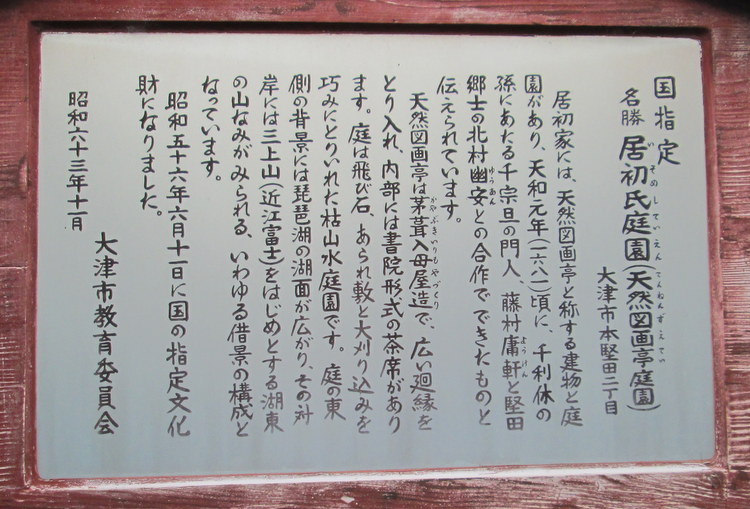 国指定
名勝 居初氏庭園(天然図画亭庭園)
いそめしていえん てんねんずえてい
大津市本堅田二丁目
居初家には、天然図画亭と称する建物と庭
園があり、天和元年(一六八一)頃に、千利休の
孫にあたる千宗旦の門人、藤村庸軒と堅田
ようけん
郷士の北村幽安との合作でできたものと
ゆうあん
伝えられています。
天然図画亭は茅葺入母屋造で、広い廻縁を
かやぶきいりもやづくり
とり入れ、内部には書院形式の茶席があり
ます。庭は飛び石、あられ敷と大刈り込みを
巧みにとりいれた枯山水庭園です。庭の東
側の背景には琵琶湖の湖面が広がり、その対
岸には三上山(近江富士)をはじめとする湖東
の山なみがみられる、いわゆる借景の構成と
なっています。
昭和五十六年六月十一日に国の指定文化
財になりました。
昭和六十三年十一月
大津市教育委員会